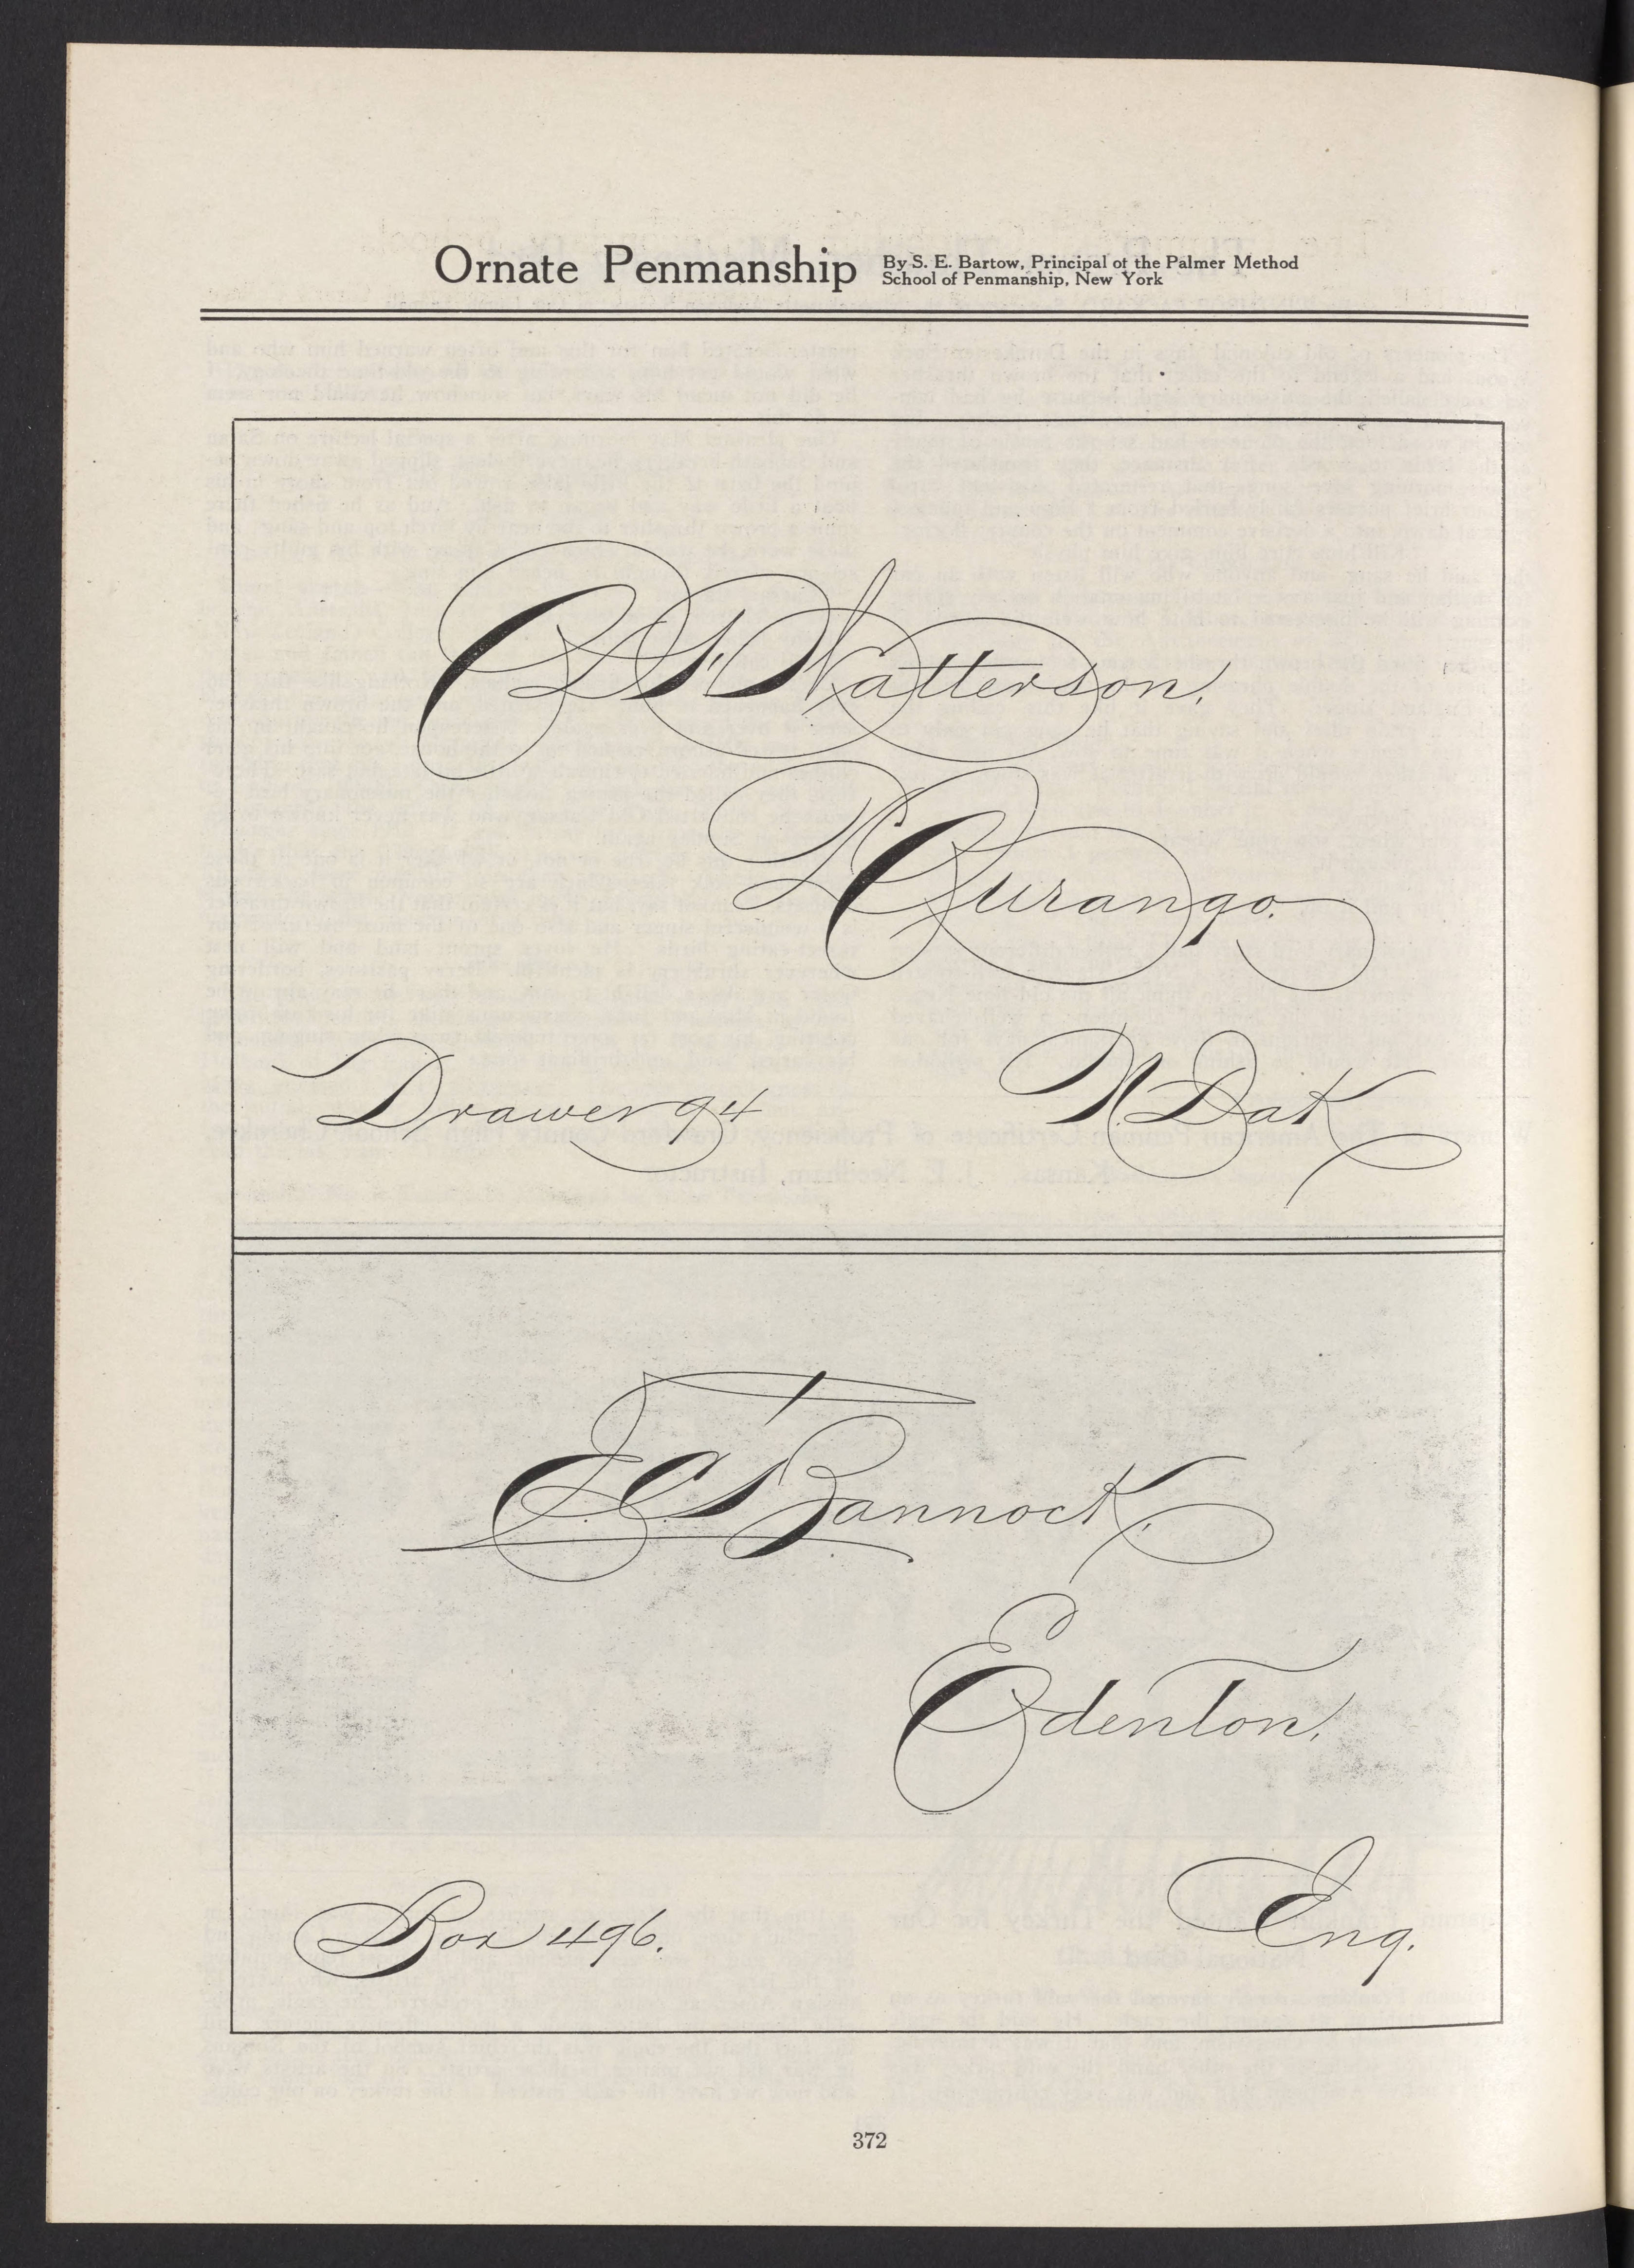 Ornate Penmanship
By S. E. Bartow, Principal of the Palmer Method
School of Penmanship, New York
C. S. Watterson,
Durango.
Drawer 94
N. Dak
E. C. Bannock,
Edenton,
Box 496.
Eng.
372